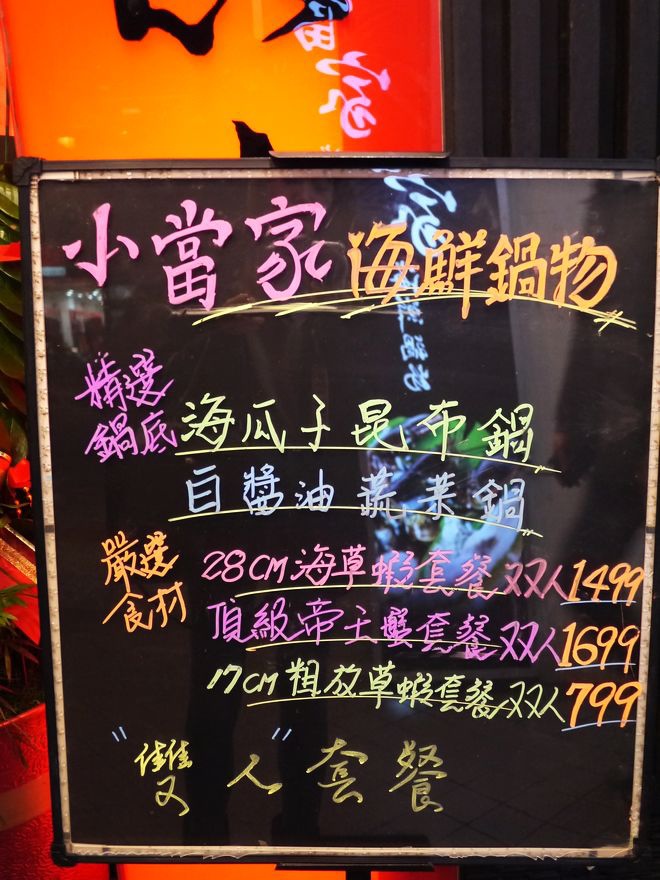 小當家海鮮鍋物
精選鍋底
海瓜子昆布鍋
白醬油蔬菜鍋
嚴選食材
28CM海草蝦套餐双人1499
頂級帝王蟹套餐双人1699
17CM粗放草蝦套餐双人799
"雙人"套餐